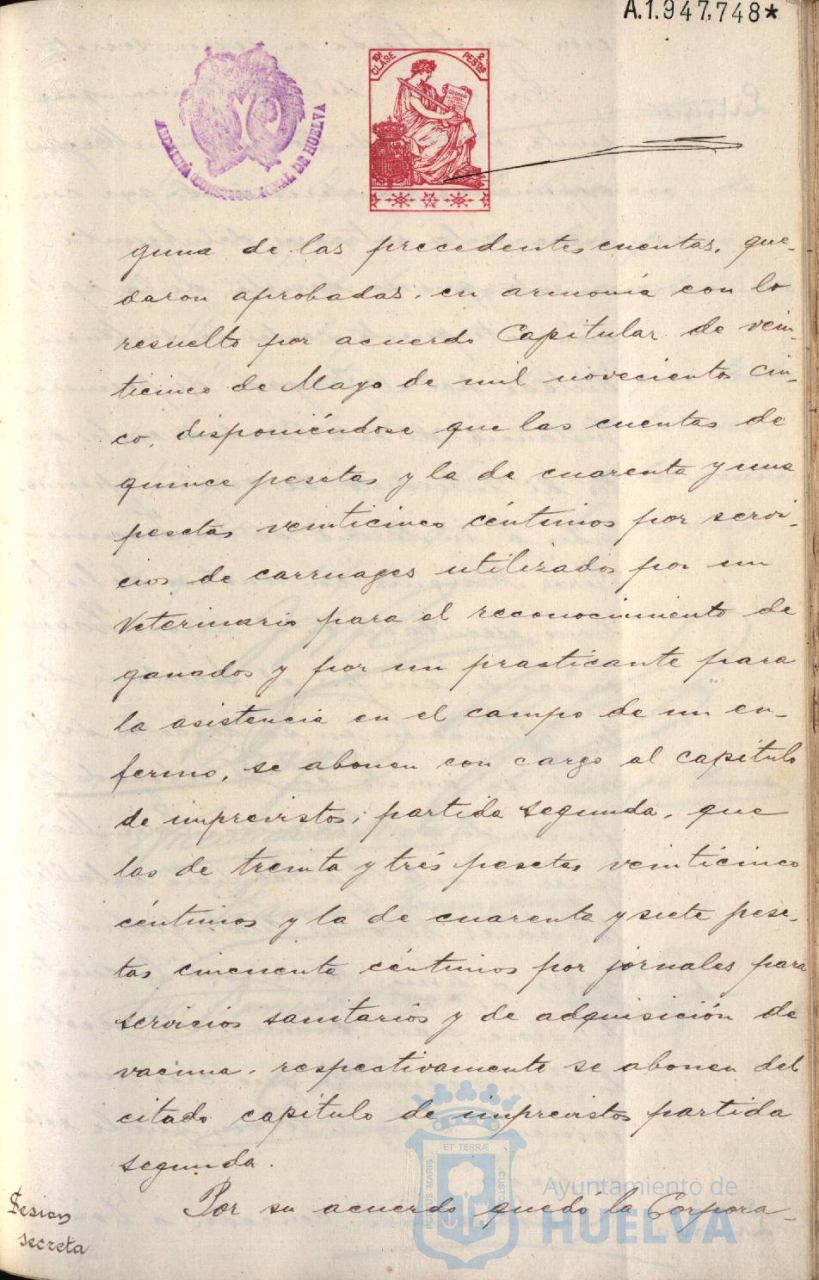 A.1.947,748*
10ª CLASE
2 PESTAS
ALCALDIA CONSTITUCIONAL DE HUELVA
guna de las precedentes cuentas, que-
daron aprobadas, en armonía con lo
resuelto por acuerdo Capitular de vein-
ticinco de Mayo de mil novecientos cin-
co, disponiéndose que las cuentas de
quince pesetas y la de cuarenta y una
pesetas veinticinco céntimos por servi-
cios de carruages utilizados por un
Veterinario para el reconocimiento de
ganados y por un prasticante para
la asistencia en el campo de un en-
fermo, se abonen con cargo al capitulo
de imprevistos; partida segunda, que
las de treinta y trés pesetas veinticinco
céntimos y la de cuarenta y siete pese-
tas cincuenta céntimos por jornales para
servicios sanitarios y de adquisición de
vacuna, respectivamente se abonen del
citado capitulo de imprevistos partida
segunda.
Sesion
secreta
Por su acuerdo quedó la Corpora-
PORTUS MARIS ET TERRÆ CUSTODIA
Ayuntamiento de
HUELVA